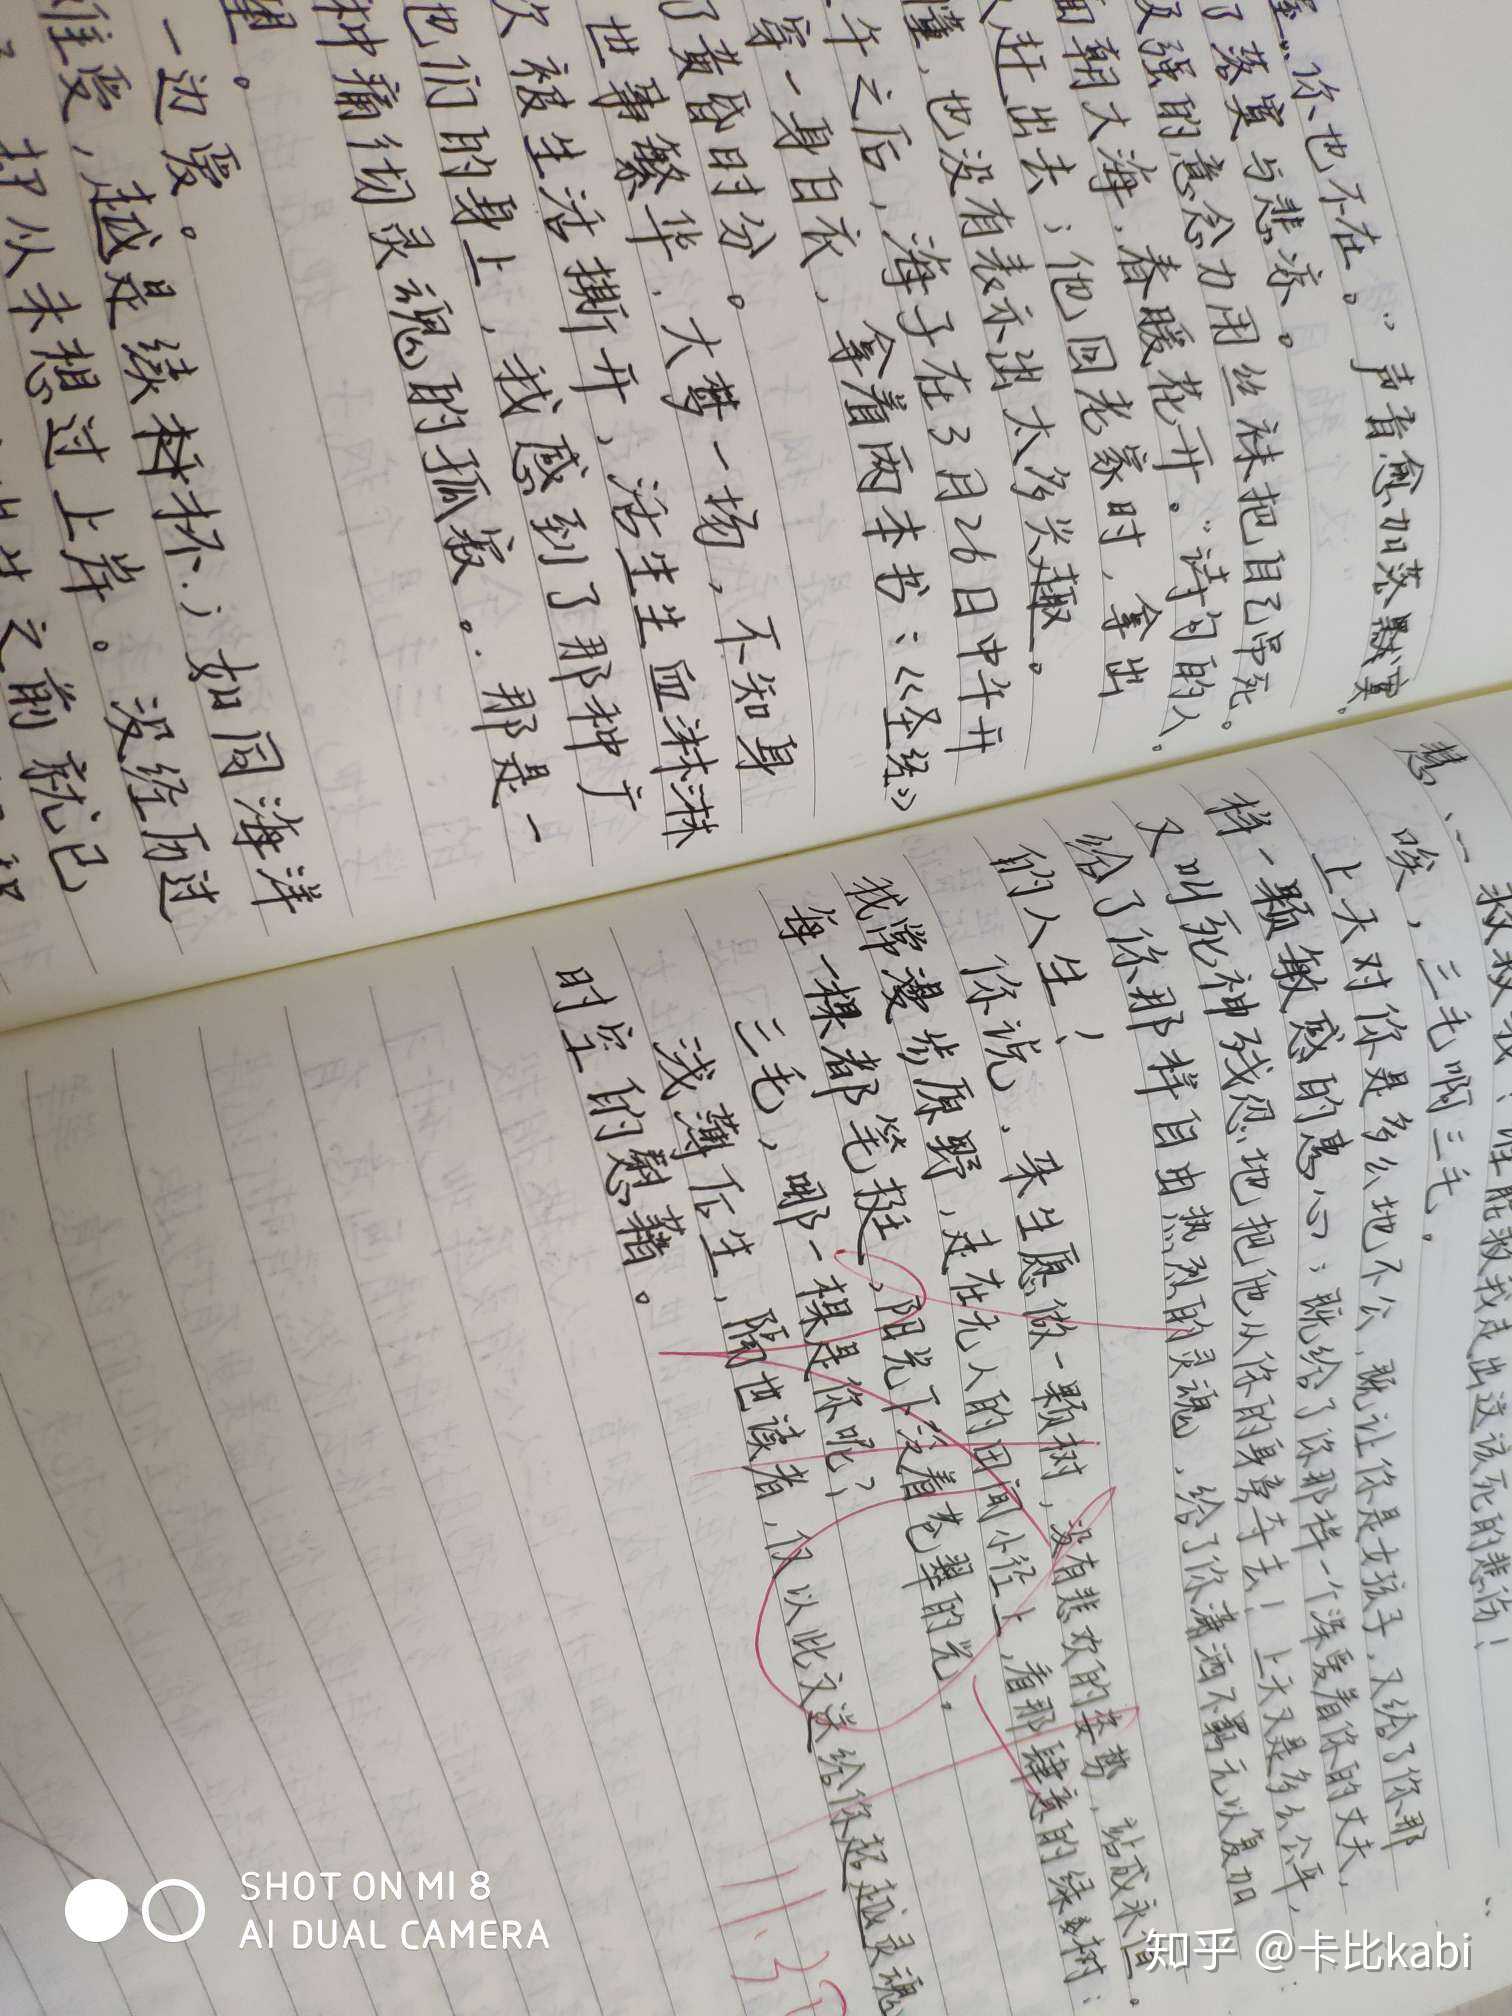 你也不在。”声音愈加落默寞。
了落寞与悲凉。
强的意念力用丝袜把自己吊死。
面朝大海，春暖花开。”诗句的人，
人赶出去；他回老家时，拿出
懂，也没有表示出太多兴趣。
午之后，海子在3月26日中午开
穿一身白衣，拿着两本书：《圣经》
了黄昏时分。
世事繁华，大梦一场，不知身
次被生活撕开，活生生血淋淋
他们的身上，我感到了那种广
种痛彻灵魂的孤寂。那是一
望。
一边爱。
越是续；如同海洋
却从未想过上岸。没经历过
之前就已
救救我！谁能救我走出这该死的悲伤！
唉，三毛啊三毛。
上天对你是多么地不公，既让你是女孩子，又给了你那
样一颗敏感的心；既给了你那样一个深爱着你的丈夫，
又叫死神残忍地把他从你的身旁夺去！上天又是多么公平，
给了你那样自由热烈的灵魂，给了你潇洒不羁无以复加
的人生！
你说，来生愿做一颗树，没有悲欢的姿势，站成永恒。
我常漫步原野，走在无人的田间小径上，看那肆意的绿树：
每一棵都笔挺，阳光下泛着苍翠的光。
三毛，哪一棵是你呢？
浅薄后生，隔世读者，仅以此文送给你超越灵魂
时空的慰藉。
SHOT ON MI 8
AI DUAL CAMERA
知乎 @卡比kabi